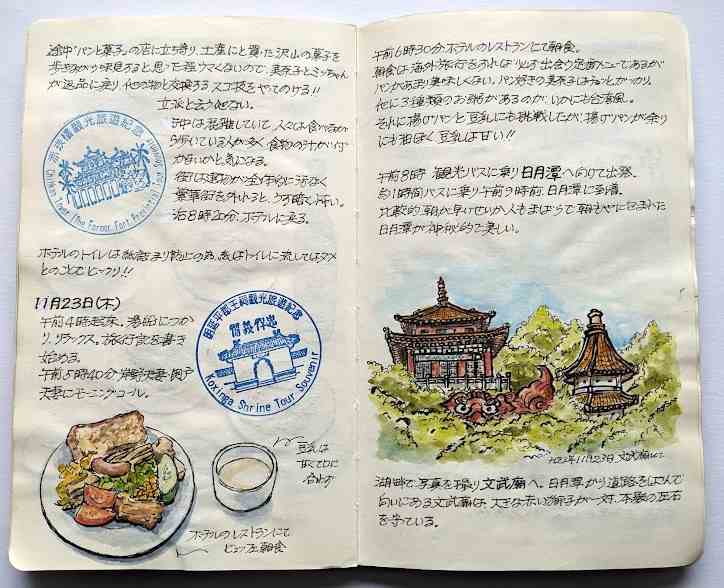 途中"パンと菓子"の店に立ち寄り、土産にと買った沢山の菓子を
歩きながら味見すると思った程ウマくないので、美奈子とミッちゃん
が返品に戻り、他の物と交換するスゴ技をやってのける!!
立派と云う他ない。
街中は混雑していて、人々は食べながら
歩いている人が多く、食物の汁が付
かないかと気になる。
街は建物が全体的に
繁華街を外れると、うす暗く
泊8時20分、ホテルに戻る。
赤崁樓觀光旅遊紀念
Chikan Tower (The Former Fort Provintia) Tour
ホテルのトイレは紙詰まり防止の為、紙はトイレに流してはダメ
とのことでビックリ!!
11月23日(木)
午前4時起床。湯船につか
り、リラックス。旅行記を書き
始める。
午前5時40分 夫妻・関戸
夫妻にモーニングコール。
明延平郡王祠觀光旅遊紀念
Koxinga Shrine Tour Souvenir
豆乳は
甘くて口に
合わず
ホテルのレストランにて
ビュッフェ朝食
午前6時30分 ホテルのレストランにて朝食。
朝食は海外旅行をすれば必ず出合う定番メニューであるが
パンがあまり美味しくない。パン好きの美奈子はチョッとがっかり。
他に3種類のお粥があるのが、いかにも台湾風。
それに揚げパンと豆乳にも挑戦したが、揚げパンが余り
にも油ぽく、豆乳は甘い!!
午前8時 観光バスに乗り 日月潭へ向けて出発。
約1時間バスに乗り午前9時前、日月潭に到着。
比較的 朝が早いせいか人もまばらで、朝もやに包まれた
日月潭が神秘的で美しい。
2023年11月23日 文武廟にて
湖畔で写真を撮り 文武廟へ。日月潭から道路をはさんで
向いにある文武廟は、大きな赤い獅子が一対、本殿の左右
を守っている。